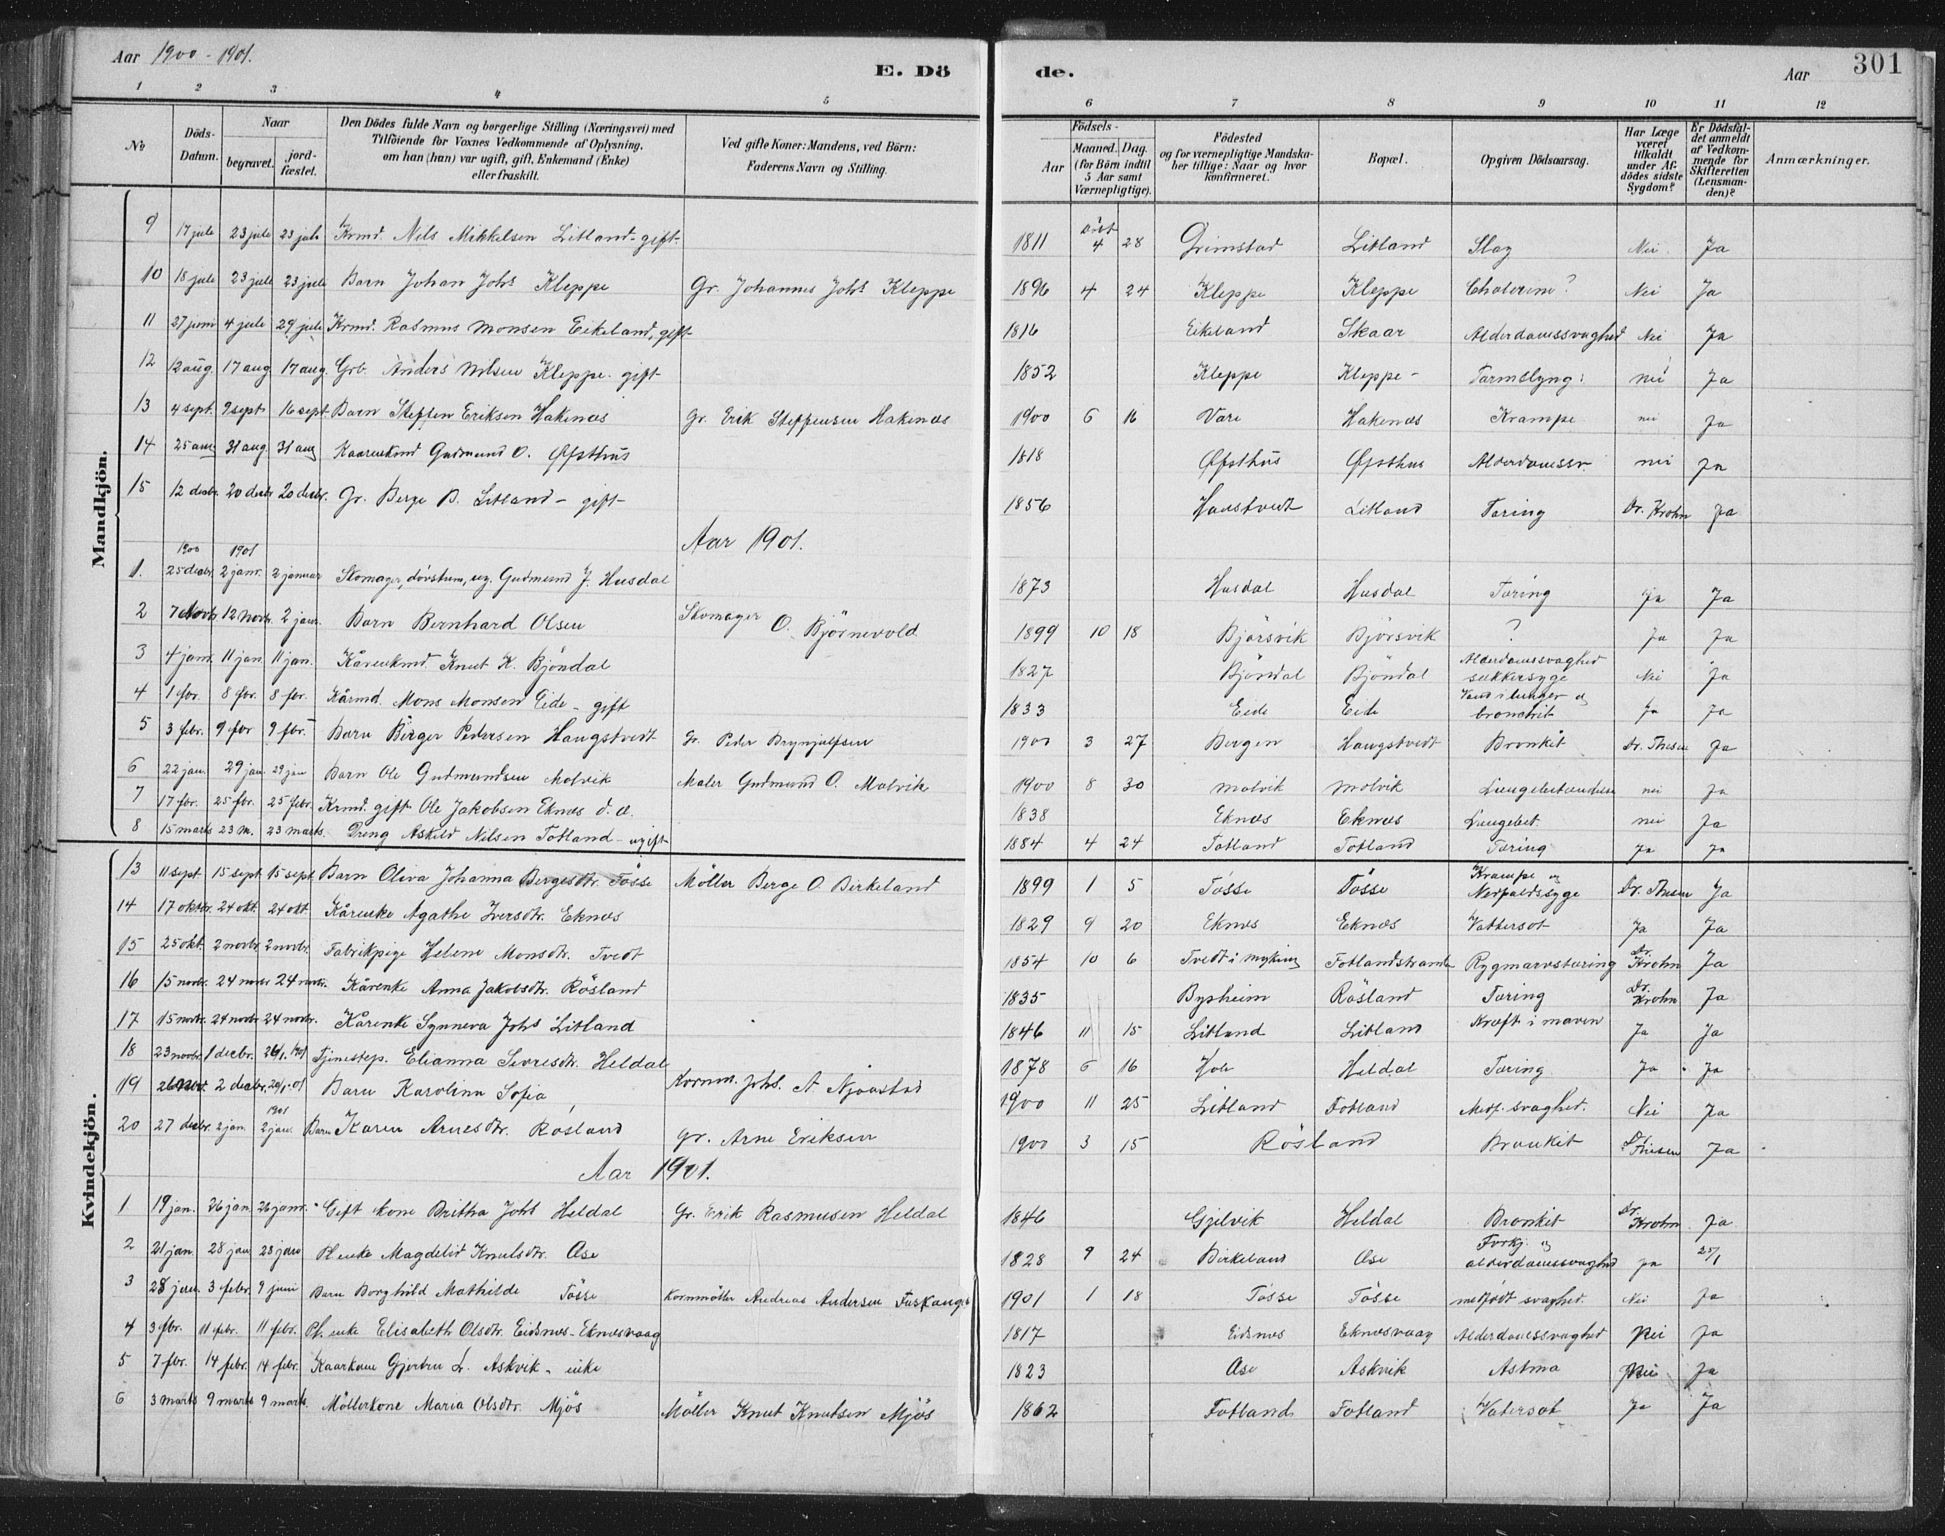 Aar 1900 - 1901.
E. Dö de.
Aar
301
1 2 3 4 5 6 7 8 9 10 11 12
№
Döds-Datum.
Naar
begravet.
jord-fæstet.
Den Dödes fulde Navn og borgerlige Stilling (Næringsvei) med
Tilföiende for Voxnes Vedkommende af Oplysning,
om han (hun) var ugift, gift, Enkemand (Enke)
eller fraskilt.
Ved gifte Koner: Mandens, ved Börn:
Faderens Navn og Stilling.
Födsels-
Aar
Maaned. Dag.
(for Börn indtil
5 Aar samt
Værnepligtige).
Födested
og for værnepligtige Mandska-
ber tillige: Naar og hvor
konfirmeret.
Bopæl.
Opgiven Dödsaarsag.
Har Læge
været
tilkaldt
under Af-
dödes sidste
Sygdom?
Er Dödsfal-
det anmeldt
af Vedkom-
mende for
Skifteretten
(Lensman-
den)?
Anmærkninger.
Mandkjön.
9 17 jule 23 jule 23 jule Krmd. Nels Mikkelsen Litland - gift - 1811 4 28 Grimstad Litland Slag Nei. Ja
10 18 jule 23 jule 23 jule Barn Johan Johs Kleppe Gr. Johannes Johs Kleppe 1896 4 24 Kleppe Kleppe Cholerine? Nei Ja
11 27 juni 4 jule 29 jule Krmd. Rasmus Monsen Eikeland, gift 1816 Eikeland Skaar Alderdomssvaghed Nei Ja
12 12 aug. 17 aug 17 aug. Grb. Anders Nilsen Kleppe. gift 1852 Kleppe Kleppe - Tarmslyng: nei Ja
13 4 sept. 9 sept 16 sept. Barn Steffen Eriksen Hakenæs Gr. Erik Steffensen Hakenæs 1900 6 16 Vare Hakenæs Krampe nei Ja
14 25 aug 31 aug. 31 aug Kaarenkmd Gudmund O. Øfsthus 1818 Øfsthus Øfsthus Alderdomssv. nei Ja
15 12 decbr. 20 decbr 20 decbr. Gr. Berge B. Litland - gift - 1856 Haustvedt Litland Tæring Dr. Krohn Ja
Aar 1901.
1900 1901
1. 25 decbr. 2 janr. 2 januar Skomager, døvstum, ug. Gudmund J. Husdal 1873 Husdal Husdal Tæring Ja Ja
2 7 Novbr 12 novbr. 2 janr. Barn Bernhard Olsen Skomager O. Bjørnevold 1899 10 18 Bjørsvik Bjørsvik ? Ja Ja
3 4 janr. 11 jan 11 jan. Kårenkmd. Knut K. Bjöndal 1827 Bjöndal Bjöndal Alderdomssvaghed sukkersyge Nei Ja
4 1 febr. 8 febr. 8 febr. Kårmd. Mons Monsen Eide - gift 1833 Eide Eide Vand i lunger og bronchit Ja Ja
5 3 febr. 9 febr 9 fbr. Barn Birger Pedersen Haugstvedt Gr. Peder Brynjulfsen 1900 3 27 Bergen Haugstvedt Bronkit Dr. Thesen Ja
6 22 jan. 29 jan. 29 jan Barn Ole Gudmundsen Molvik Maler Gudmund O. Molvik 1900 8 30 Molvik Molvik Lungebetændelse nei Ja
7 17 fbr. 25 fbr. 25 febr. Krmd. gift Ole Jakobsen Eknæs d. æ. 1838 Eknæs Eknæs Lungebet. nei Ja
8 15 marts 23 m. 23 marts. Dreng Askild Nilsen Totland - ugift 1884 4 24 Totland Totland Tæring Ja Ja
Kvindekjön.
13 11 sept 15 sept. 15 sept Barn Oliva Johanna Bergesdtr. Tösse Möller Berge O. Birkeland 1899 1 5 Tösse Tösse Krampe og Nedfaldssyge Dr. Thesen Ja
14 17 oktbr. 24 okt. 24 okt. Kårenke Agathe Iversdtr. Eknæs 1829 9 20 Eknæs Eknæs Vattersot Ja Ja
15 25 okt. 2 novbr. 2 novbr. Fabrikpige Helene Monsdtr. Tvedt 1854 10 6 Tvedt i Myking Totlandstranden Rygmarvstæring Dr. Krohn Ja
16 15 novbr. 24 novbr 24 novbr. Kårenke Anna Jakobsdtr. Rösland 1835 Bysheim Rösland Tæring Dr. Krohn Ja
17 15 novbr. 24 novbr 24 novbr. Kårenke Synneva Johs Litland 1846 11 15 Litland Litland Kræft i maven Ja Ja
18 23 novbr. 1 decbr. 26/1. 1901 Tjenestep. Elianna Seversdtr. Heldal 1878 6 16 Hole Heldal Tæring Ja Ja
19 26 Novbr. 2 decbr. 20/1-01 Barn Karolina Sofia Kornm. Johs. A. Njaastad 1900 11 25 Litland Totland Medf. svaghed. Nei Ja
20 27 decbr. 2 jan. 1901 2 jan. Barn Karen Arnesdtr. Rösland gr. Arne Eriksen 1900 3 15 Rösland Bronkit Dr. Thesen Ja
Aar 1901.
1 19 jan. 26 jan. 26 janr. Gift kone Britha Johs Heldal Gr. Erik Rasmusen Heldal 1846 Gjelvik Heldal Bronkit Dr. Krohn Ja
2 21 jan. 28 jan 23 juni Pl enke Magdeli Knutsdtr. Ose 1828 9 24 Birkeland Ose Forkj. og alderdomssvaghed Ja 25/1
3 28 janr. 3 febr. 9 juni Barn Borghild Mathilde Tösse Kornmöller Andreas Andersen Fuskanger 1901 1 18 Tösse Tösse medfödt svaghed. Nei Ja
4 3 fbr. 11 febr. 11 febr. Pl. enke Elisabeth Olsdtr. Eidsnes - Eknesvaag 1817 Eidsnes Eknesvaag Alderdomssvaghed Nei Ja
5 7 fbr. 14 febr. 14 febr. Kaarkone Gjertru L. Askvik - enke 1823 Ose Askvik Astma Nei Ja
6 3 marts 9 marts 9 marts. Möllerkone Maria Olsdtr. Mjös Möller Knut Knutsen Mjös 1862 Totland Totland Vatersot Ja Ja